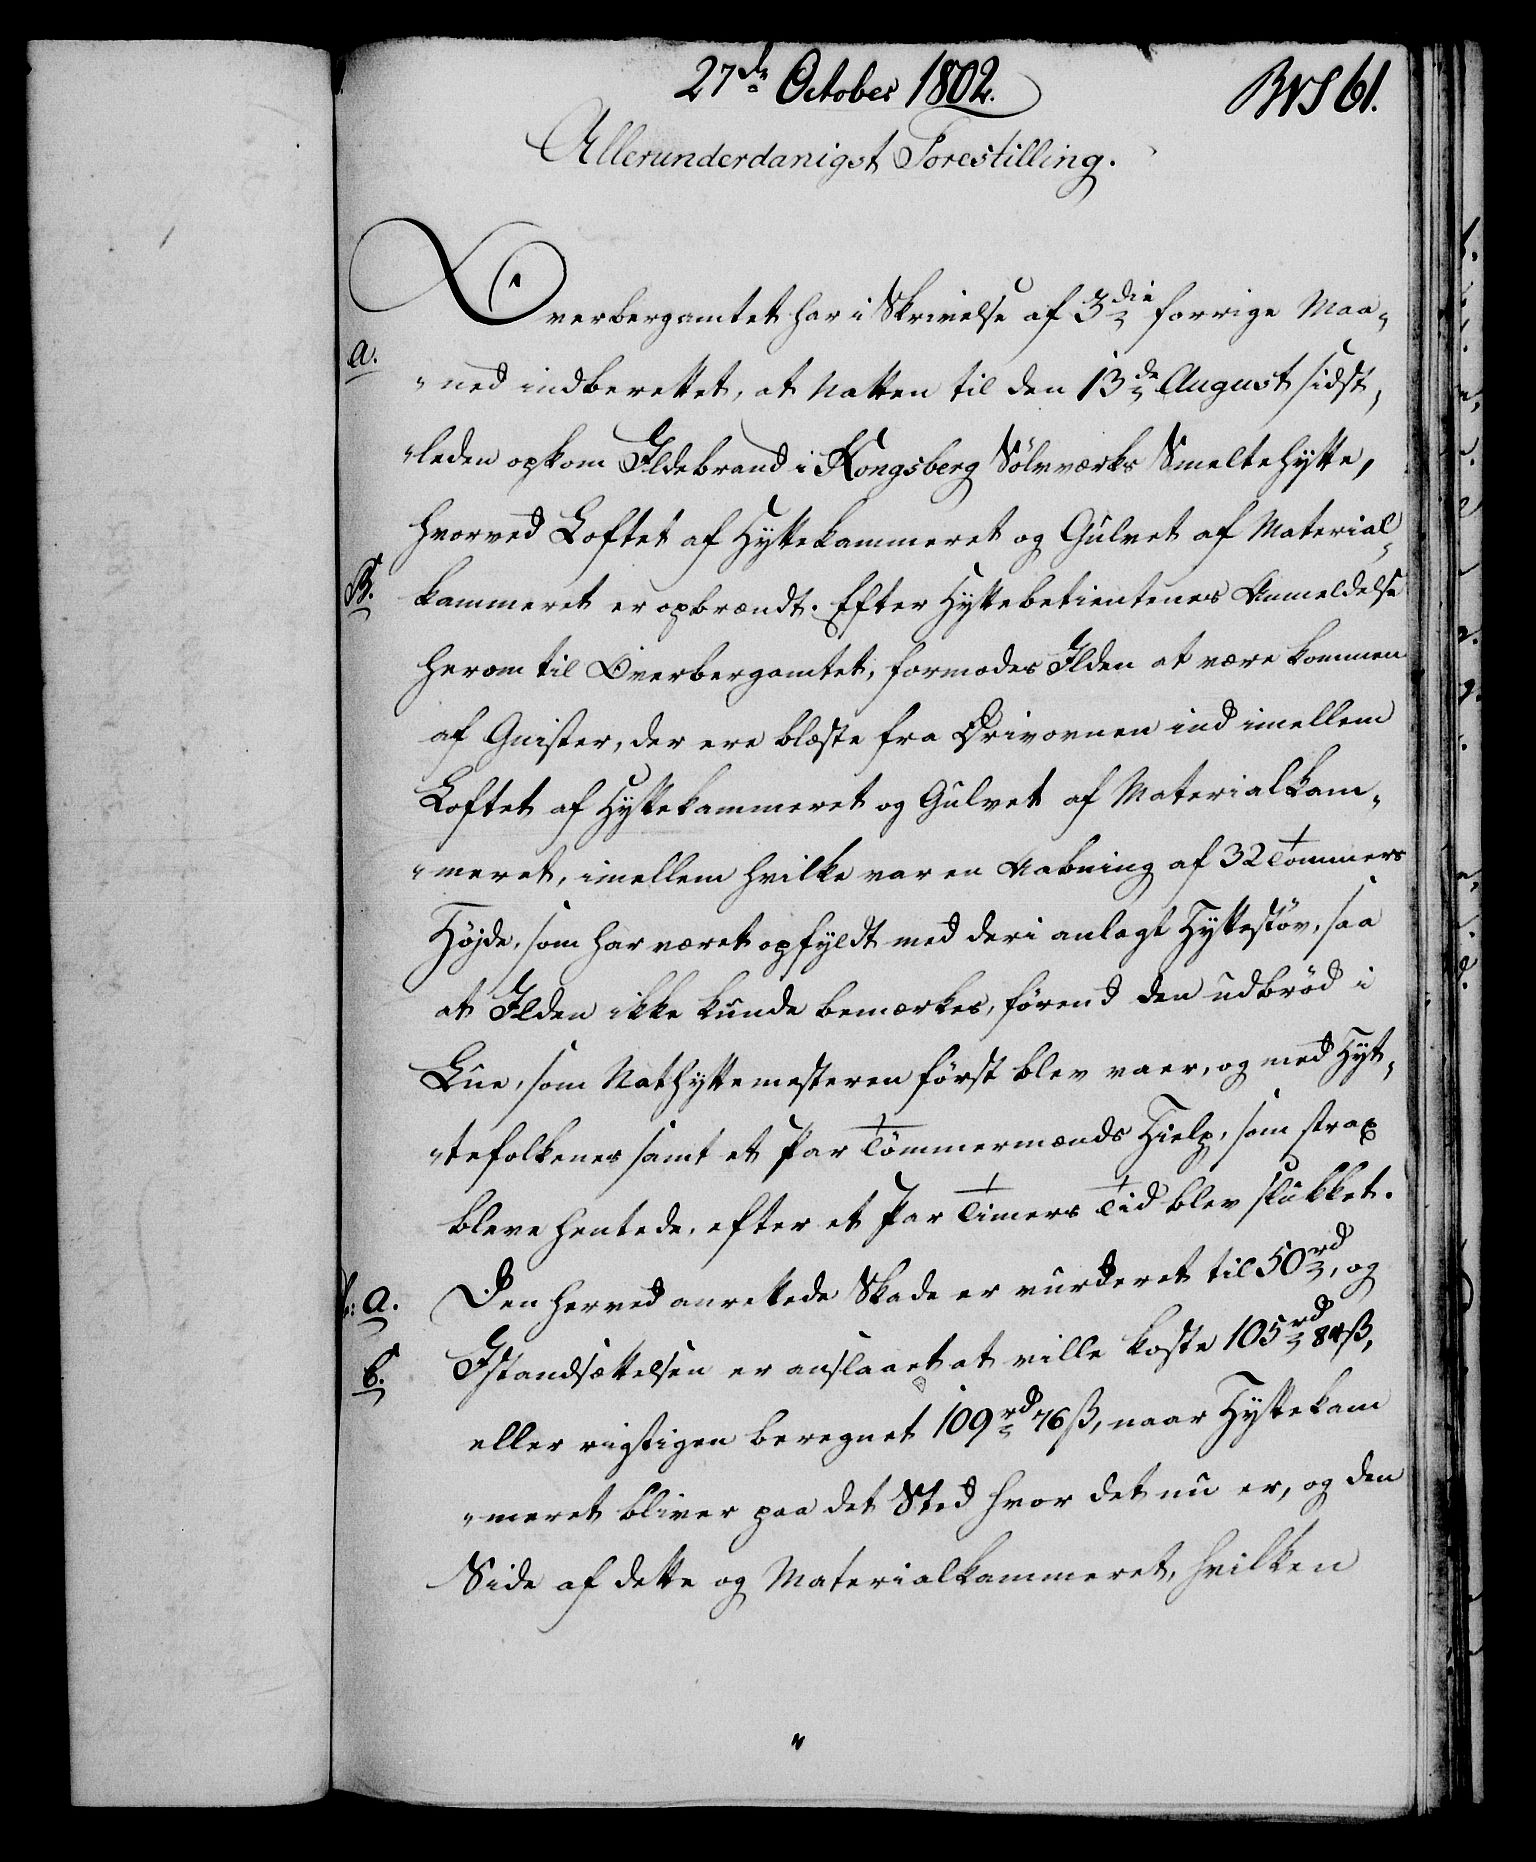 27de October 1802.
61.
Allerunderdanigst Forestilling.
Overbergamtet har i Skrivelse af 3die forrige Maa-
a.
"ned indberettet, at Natten til den 13de August sidst-
"leden opkom Ildebrand i Kongsberg Sölvværks Smeltehytte,
hvorved Loftet af Hyttekammeret og Gulvet af Material-
B.
kammeret er opbrændt. Efter Hyttebetientenes Anmeldelse
herom til Overbergamtet, formodes Ilden at være kommen
af Gnister, der ere blæste fra Drivovnen ind imellem
Loftet af Hyttekammeret og Gulvet af Materialkam-
"meret, imellem hvilke var en Aabning af 32 Tommers
Höjde, som har været opfyldt med deri anlagt Hyttestöv, saa
at Ilden ikke kunde bemærkes, förend den udbröd i
Lue, som Nathyttemesteren först blev vaer, og med Hyt-
"tefolkenes samt et Par Tömmermænds Hielp, som strax
bleve hentede, efter et Par Timers Tid blev slukket.
a.
Den herved anrettede Skade er vurderet til 50rd, og
b.
Istandsættelsen er anslaaet at ville koste 105rd 84ß,
eller rigtigen beregnet 109rd 76ß, naar Hyttekam
"meret bliver paa det Sted hvor det nu er, og den
Side af dette og Materialkammeret, hvilken